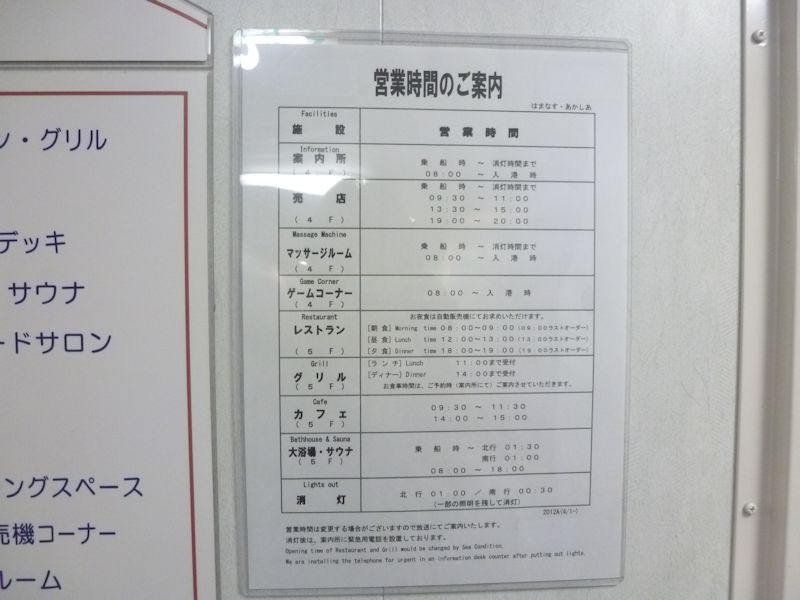 ン・グリル
デッキ
サウナ
ードサロン
ングスペース
売機コーナー
ルーム
営業時間のご案内
はまなす・あかしあ
Facilities
施 設
営業時間
Information
案内所
(4F)
乗船時 ～ 消灯時間まで
08:00 ～ 入港時
売店
(4F)
乗船時 ～ 消灯時間まで
09:30 ～ 11:00
13:30 ～ 15:00
19:00 ～ 20:00
Massage Machine
マッサージルーム
(4F)
乗船時 ～ 消灯時間まで
08:00 ～ 入港時
Game Corner
ゲームコーナー
(4F)
08:00 ～ 入港時
Restaurant
レストラン
(5F)
お夜食は自動販売機にてお求めいただけます。
[朝食] Morning time 08:00～09:00 (09:00ラストオーダー)
[昼食] Lunch time 12:00～13:00 (13:00ラストオーダー)
[夕食] Dinner time 18:00～19:00 (19:00ラストオーダー)
Grill
グリル
(5F)
[ランチ] Lunch 11:00まで受付
[ディナー] Dinner 14:00まで受付
お食事時間は、ご予約時(案内所にて)ご案内させていただきます。
Cafe
カフェ
(5F)
09:30 ～ 11:30
14:00 ～ 15:00
Bathhouse & Sauna
大浴場・サウナ
(5F)
乗船時 ～ 北行 01:30
南行 01:00
08:00 ～ 18:00
Lights out
消灯
北行 01:00 / 南行 00:30
(一部の照明を残して消灯)
2012A(4/1～)
営業時間は変更する場合がございますので放送にてご案内いたします。
消灯後は、案内所に緊急用電話を設置しております。
Opening time of Restaurant and Grill would be changed by Sea Condition.
We are installing the telephone for urgent in an information desk counter after putting out lights.